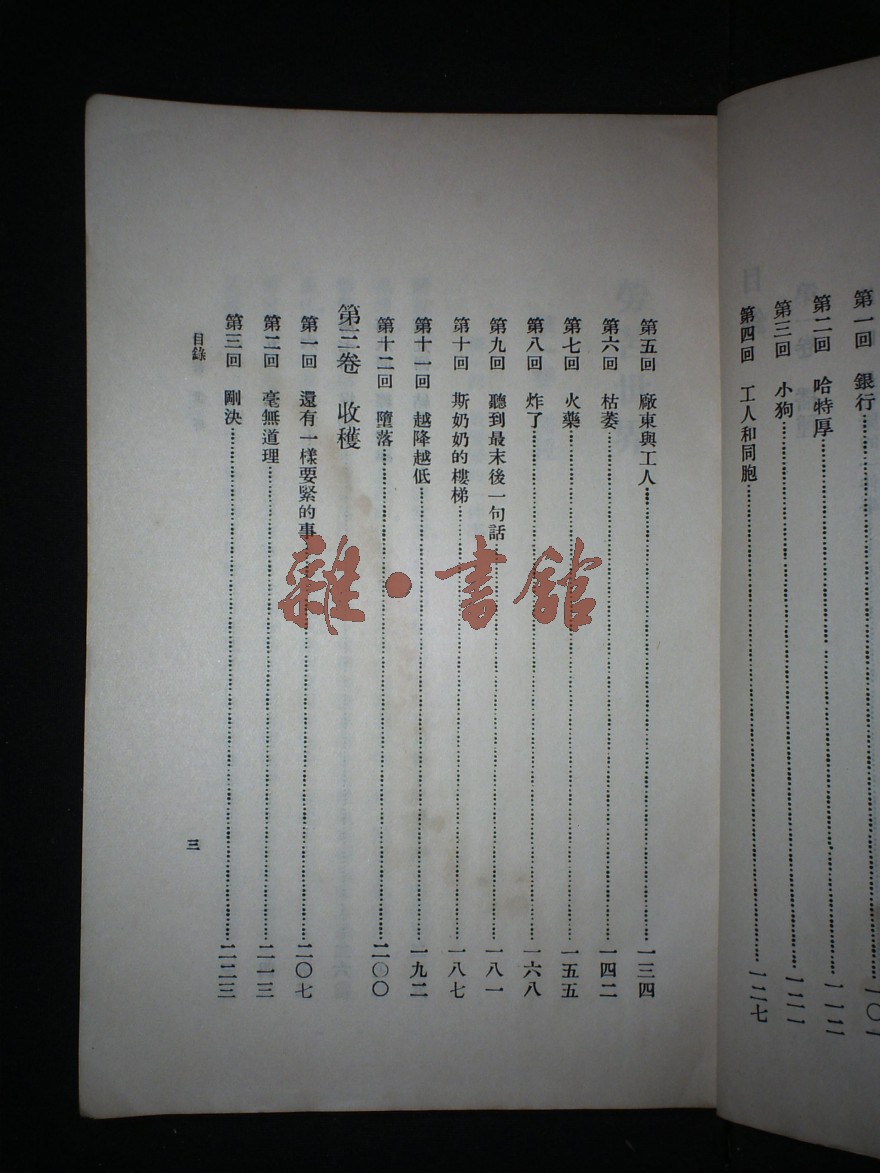 第一回　銀行……一〇一
第二回　哈特厚……一一二
第三回　小狗……一二一
第四回　工人和同胞……一二七
第五回　廠東與工人……一三四
第六回　枯萎……一四二
第七回　火藥……一五五
第八回　炸了……一六八
第九回　聽到最末後一句話……一八一
第十回　斯奶奶的樓梯……一八七
第十一回　越降越低……一九二
第十二回　墮落……二〇〇
第三卷　收穫
第一回　還有一樣要緊的事……二〇七
第二回　毫無道理……二一三
第三回　剛決……二二三
目錄
三
雜·書館